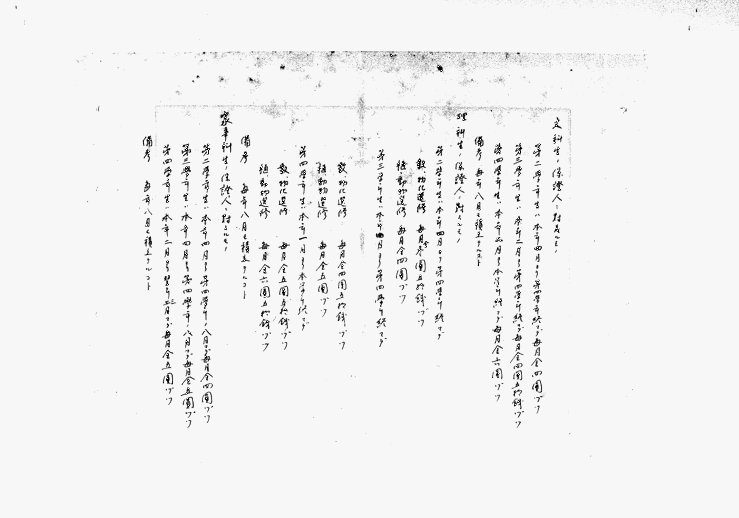 文科生ノ保證人ニ對スルモノ
第二學年生ハ本年四月ヨリ第四學年終マデ毎月金四圓ヅツ
第三學年生ハ本年二月ヨリ第四學年終マデ毎月金四圓五拾錢ヅツ
第四學年生ハ本年 月ヨリ本學年終マデ毎月金六圓ヅツ
備考 毎年八月モ積立テルコト
理科生ノ保證人ニ對スルモノ
第二學年生ハ本年四月ヨリ第四學年終マデ
數、物化選修 毎月金參圓五拾錢ヅツ
植、動物選修 毎月金四圓ヅツ
第三學年生ハ本年四月ヨリ第四學年終マデ
數、物化選修 毎月金四圓五拾錢ヅツ
植、動物選修 毎月金五圓ヅツ
第四學年生ハ本年一月ヨリ本學年終マデ
數、物化選修 毎月金五圓五拾錢ヅツ
植、動物選修 毎月金六圓五拾錢ヅツ
備考 毎年八月モ積立テルコト
家事科生ノ保證人ニ對スルモノ
第二學年生ハ本年四月ヨリ第四學年ノ八月マデ毎月金四圓ヅツ
第三學年生ハ本年四月ヨリ第四學年ノ八月マデ毎月金五圓ヅツ
第四學年生ハ本年二月ヨリ 年三月マデ毎月金五圓ヅツ
備考 毎年八月モ積立テルコト